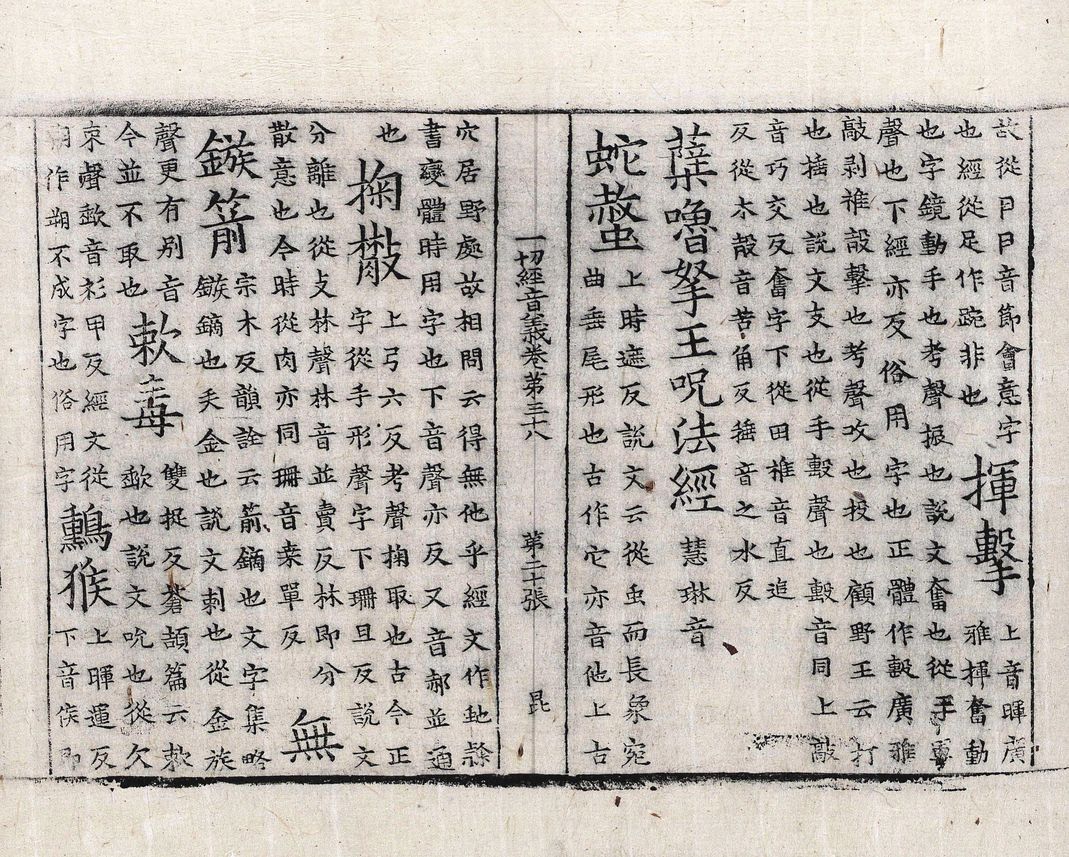 故從卪卪音節會意字
也經從足作踠非也
揮擊
上音暉廣
雅揮奮動
也字鏡動手也考聲振也說文奮也從手軍
聲也下經亦反俗用字也正體作毄廣雅
敲剥椎㱿擊也考聲攻也投也顧野王云打
也捶也說文攴也從手毄聲也毄音同上敲
音巧交反奮字下從田椎音直追
反從木㱿音苦角反捶音之水反
蘖嚕拏王呪法經 慧琳音
蛇螫
上時遮反說文云從虫而長象宛
曲垂尾形也古作它亦音他上古
一切經音義卷第三十八 第二十張 昆
穴居野處故相問云得無他乎經文作虵隷
書變體時用字也下音聲亦反又音郝並通
也
掬㪚
上弓六反考聲掬取也古今正
字從手形聲字下珊旦反說文
分離也從攴𣏟聲𣏟音並賣反𣏟即分
散意也今時從肉亦同珊音桒單反
無
鏃箭
宗木反韻詮云箭鏑也文字集略
鏃鏑也矢金也說文刺也從金族
聲更有別音
今並不取也
欶毒
雙捉反蒼頡篇云欶
歃也說文吮也從欠
朿聲歃音衫甲反經文從
朔作不成字也俗用字
猴
上暉運反
下音侯即